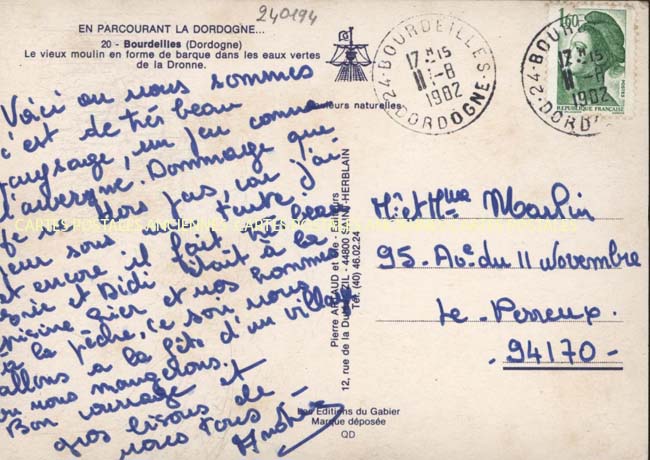 240194
EN PARCOURANT LA DORDOGNE...
20 - Bourdeilles (Dordogne)
Le vieux moulin en forme de barque dans les eaux vertes
de la Dronne.
Couleurs naturelles
Voici où nous sommes
c'est de très beau
paysage, un peu comme
l'auvergne. Dommage que
je ne sors pas, car j'ai
peur sous la tente.
et encore il fait très beau
et Didi était à la
hier et nos hommes
à la pêche, ce soir nous
allons à la fête d'un village
ou nous mangelons.
Bon courrage et
gros bisous de
nous tous -
Pierre ARTAUD et Cie - Editeurs
12, rue de la - 44800 SAINT-HERBLAIN
Tél. (40) 46.02.24
Les Editions du Gabier
Marque déposée
QD
24 - BOURDEILLES
17 H 15
11 - 8
1982
DORDOGNE
1,60
POSTES
REPUBLIQUE FRANÇAISE
24 - BOUR
17 H 15
11 - 8
1982
DORD
Mr et Mme Maslin
95 Ave du 11 Novembre
Le Perreux.
- 94170 -